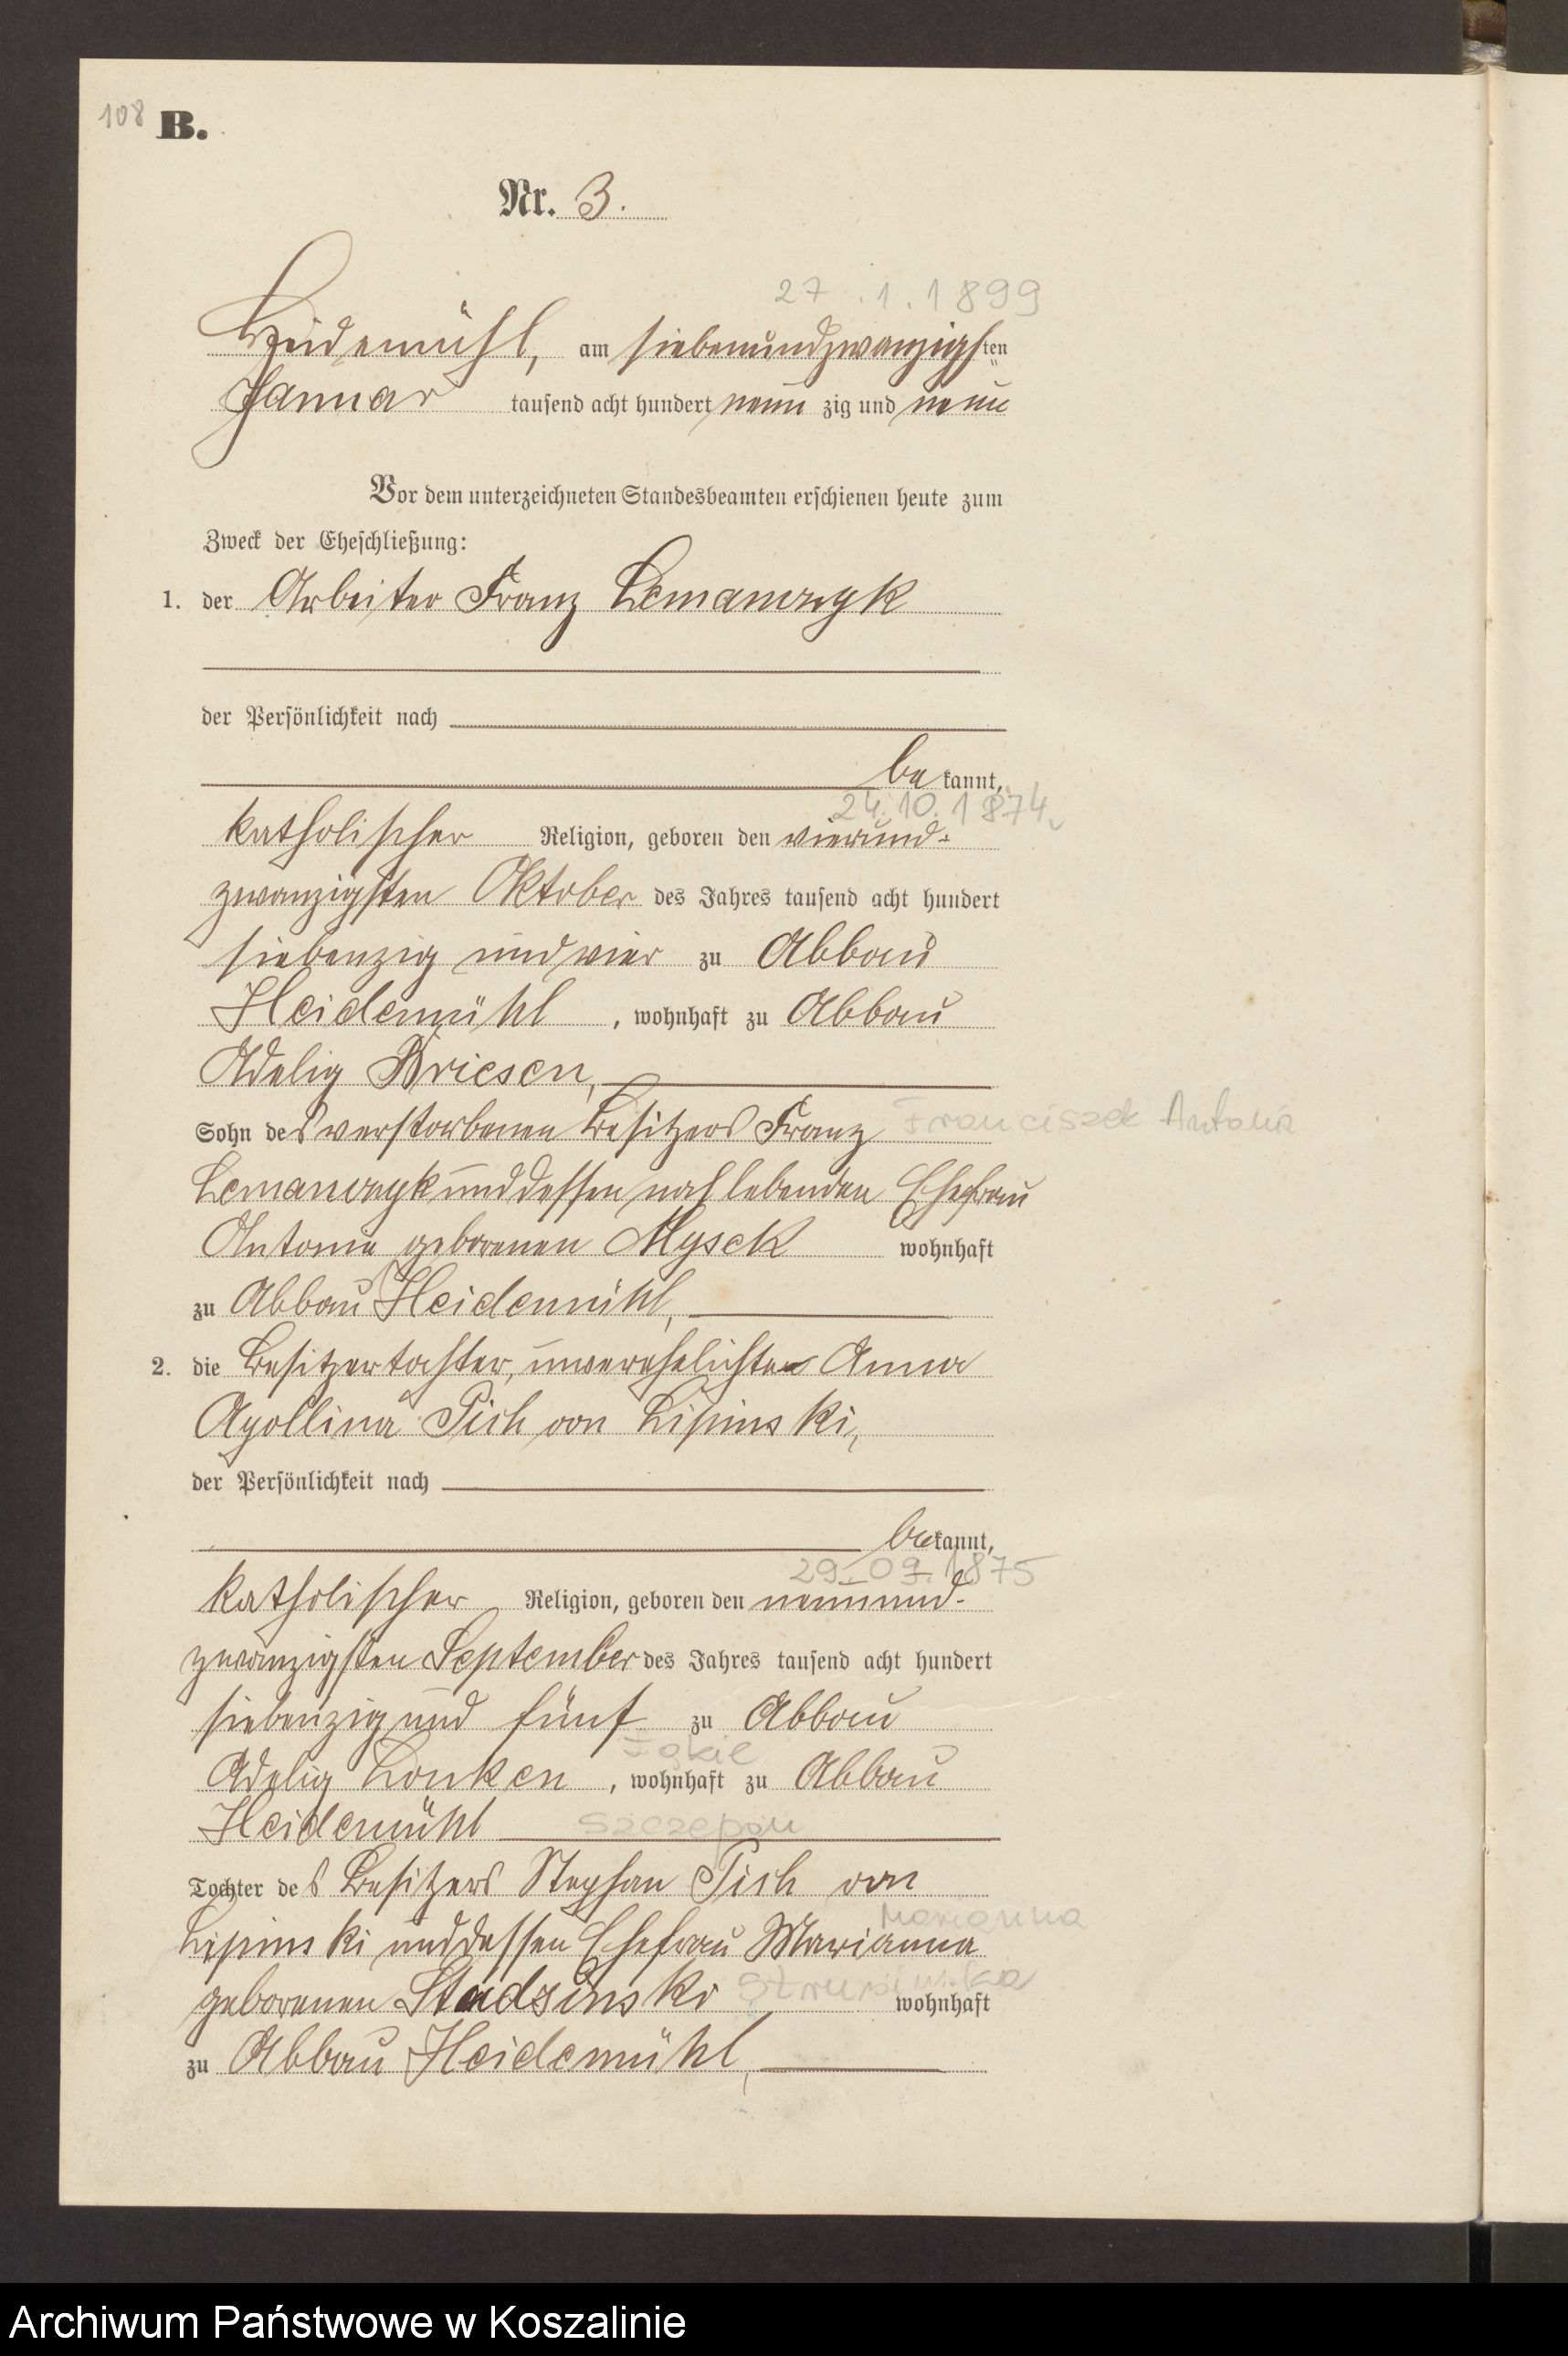 108 B.
Nr. 3.
27.1.1899
Heidemühl, am siebenundzwanzigsten
Januar tausend acht hundert neun zig und neun
Vor dem unterzeichneten Standesbeamten erschienen heute zum
Zweck der Eheschließung:
1. der Arbeiter Franz Lemanczyk
der Persönlichkeit nach
be kannt,
24.10.1874
katholischer Religion, geboren den vierund-
zwanzigsten Oktober des Jahres tausend acht hundert
siebenzig und vier zu Abbau
Heidemühl, wohnhaft zu Abbau
Adelig Briesen,
Sohn des verstorbenen Besitzers Franz Franciszek Antonia
Lemanczyk und dessen noch lebenden Ehefrau
Antonie geborenen Mysek wohnhaft
zu Abbau Heidemühl,
2. die Besitzertochter, unverehelichte Anna
Apollina Pich von Lipinski,
der Persönlichkeit nach
be kannt,
29.09.1875
katholischer Religion, geboren den neunund-
zwanzigsten September des Jahres tausend acht hundert
siebenzig und fünf zu Abbau
Łąkie
Adelig Lonken, wohnhaft zu Abbau
Heidemühl Szczepan
Tochter des Besitzers Stephan Pich von
Marianna
Lipinski und dessen Ehefrau Marianna
geborenen wohnhaft
zu Abbau Heidemühl,
Archiwum Państwowe w Koszalinie